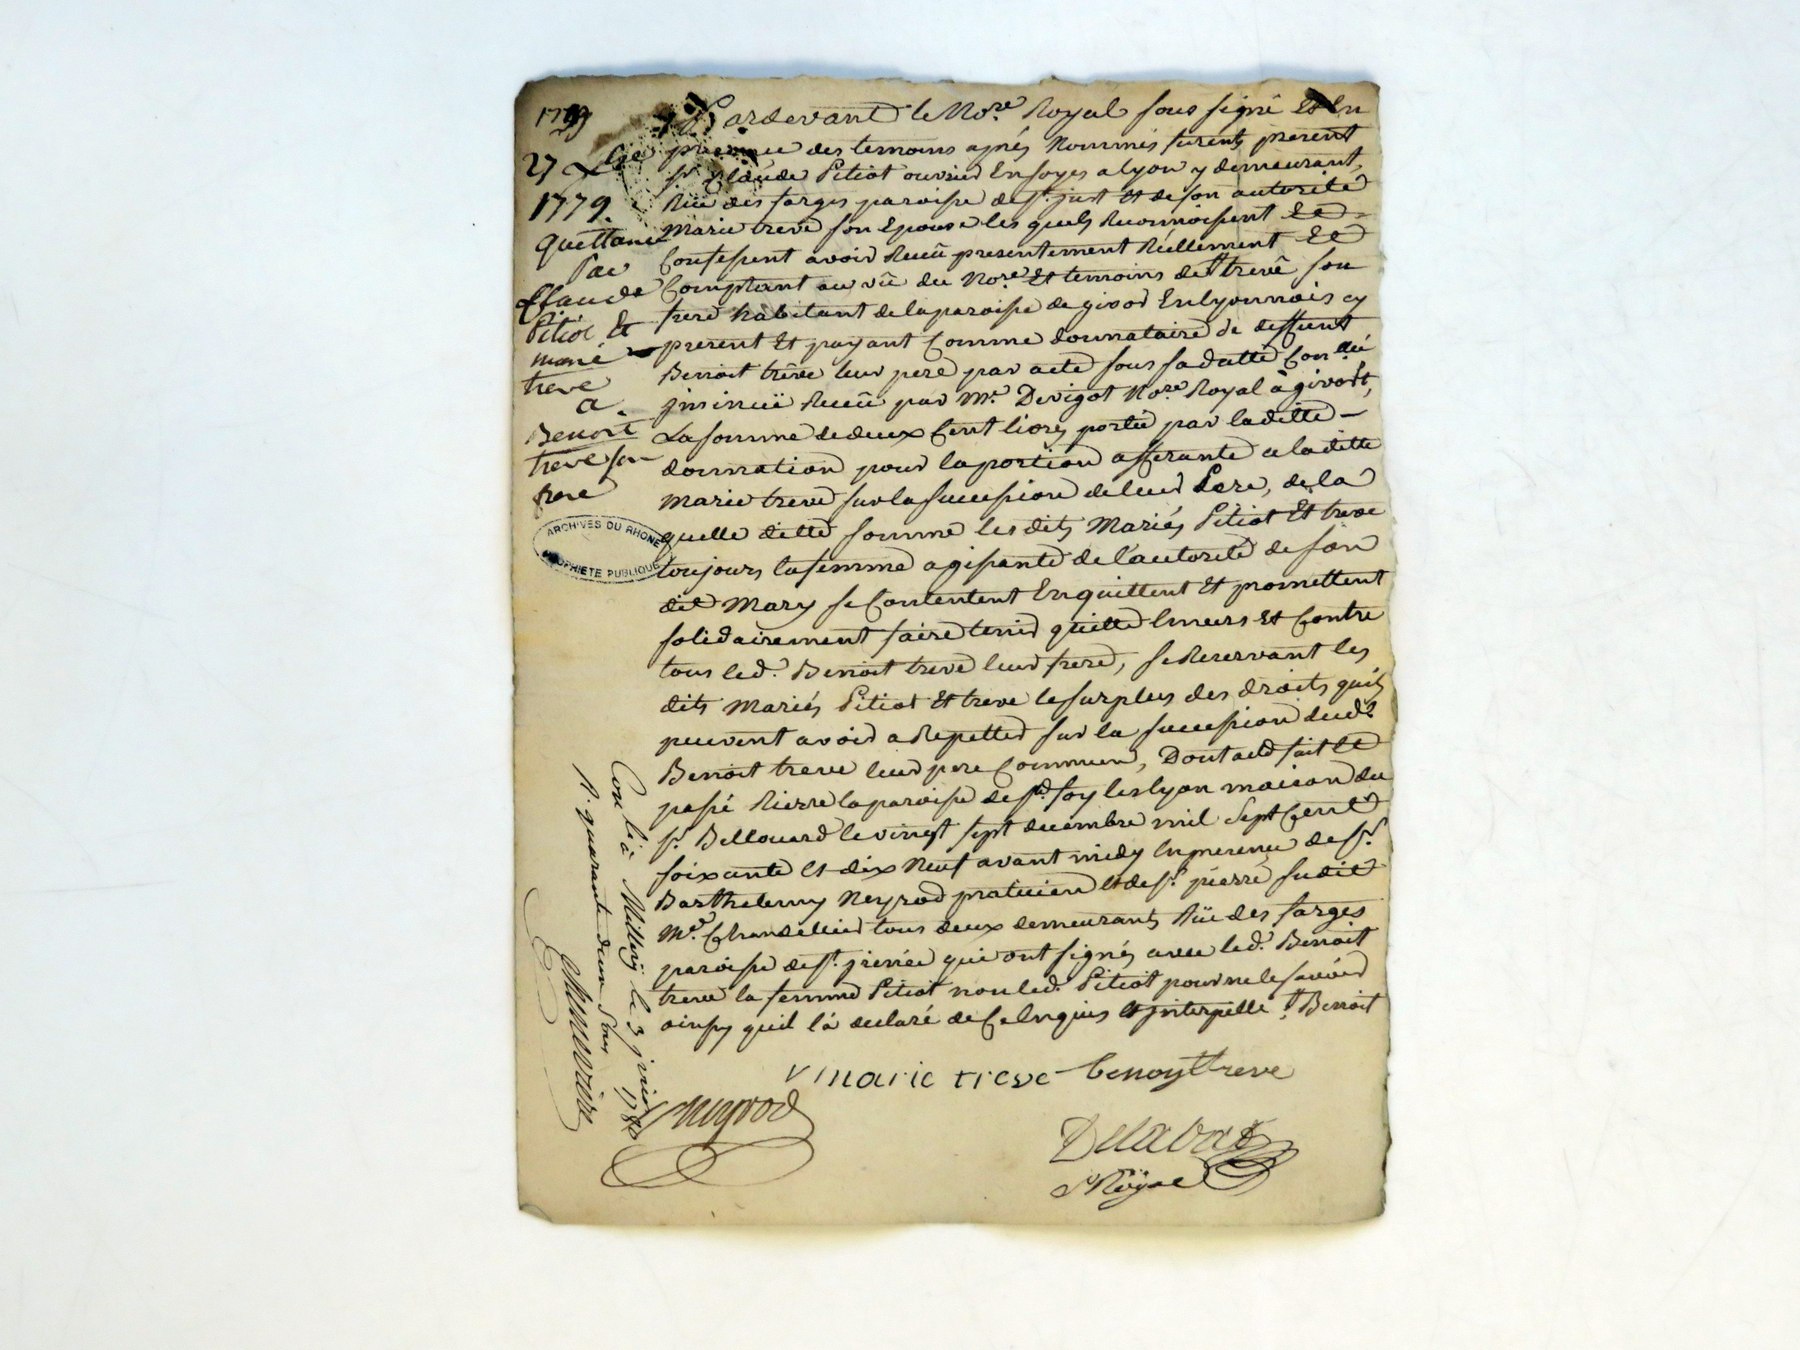 1779
27 Xbre
1779.
quittance
Par
Claude
Pitiot Et
marie
treve
a
Benoit
treve son
frere
ARCHIVES DU RHÔNE
PROPRIÉTÉ PUBLIQUE
Pardevant le Nore. Royal sous signé Et En
presence des temoins aprés Nommés furents present
sr. Claude Pitiot ouvrier En soyes a lyon y demeurant,
Rüe des farges paroisse de st. just Et de son autorité
Marie treve son Epouse les quels Reconnoissent Et
Confessent avoir Reçeu presentement Réellement Et
Comptant au vû du Nore. Et temoins de Bt treve son
frere habitant de la paroisse de givor En lyonnois cy
present Et payant Comme donnataire de deffunt
Benoit trêve leur pere par acte sous sa datte
jnsinuë Receu par Me. Devigot Nore. Royal à givort,
La somme de deux Cent livres portée par la ditte
donnation pour la portion afferante a la ditte
Marie treve sur la succession de leur Pere, de la
quelle ditte somme les dits Mariés Pitiot Et treve
toujours la femme agissante de l'autorité de son
dit Mary se Contentent En quittent Et promettent
solidairement faire tenir quitte Envers Et Contre
tous led. Benoit treve leur frere, se Reservant les
dits Mariés Pitiot Et treve le surplus des droits quils
peuvent avoir a Repetter sur la succession dudt
Benoit treve leur pere Commun, Dont acte fait Et
passé Rierre la paroisse de ste foy les lyon maison du
sr. Bellouard le vingt sept decembre mil sept Cent
soixante Et dix Neuf avant midy En presence de sr.
Barthelemy Neyrod praticien et de sr. pierre
Me. Chandellier tous deux demeurants Rüe des farges
paroisse de st. jrenée qui ont signés avec led. Benoit
treve la femme Pitiot non led. Pitiot pour ne le savoir
ainsy quil l'a declaré de Ce Enquis Et jnterpellé Benoit
marie treve benoyt treve
Neyrod
Delabat
N Royal
Con lé à Millery le 3 janvier 1780
R. quarante deux sous
Chenevière